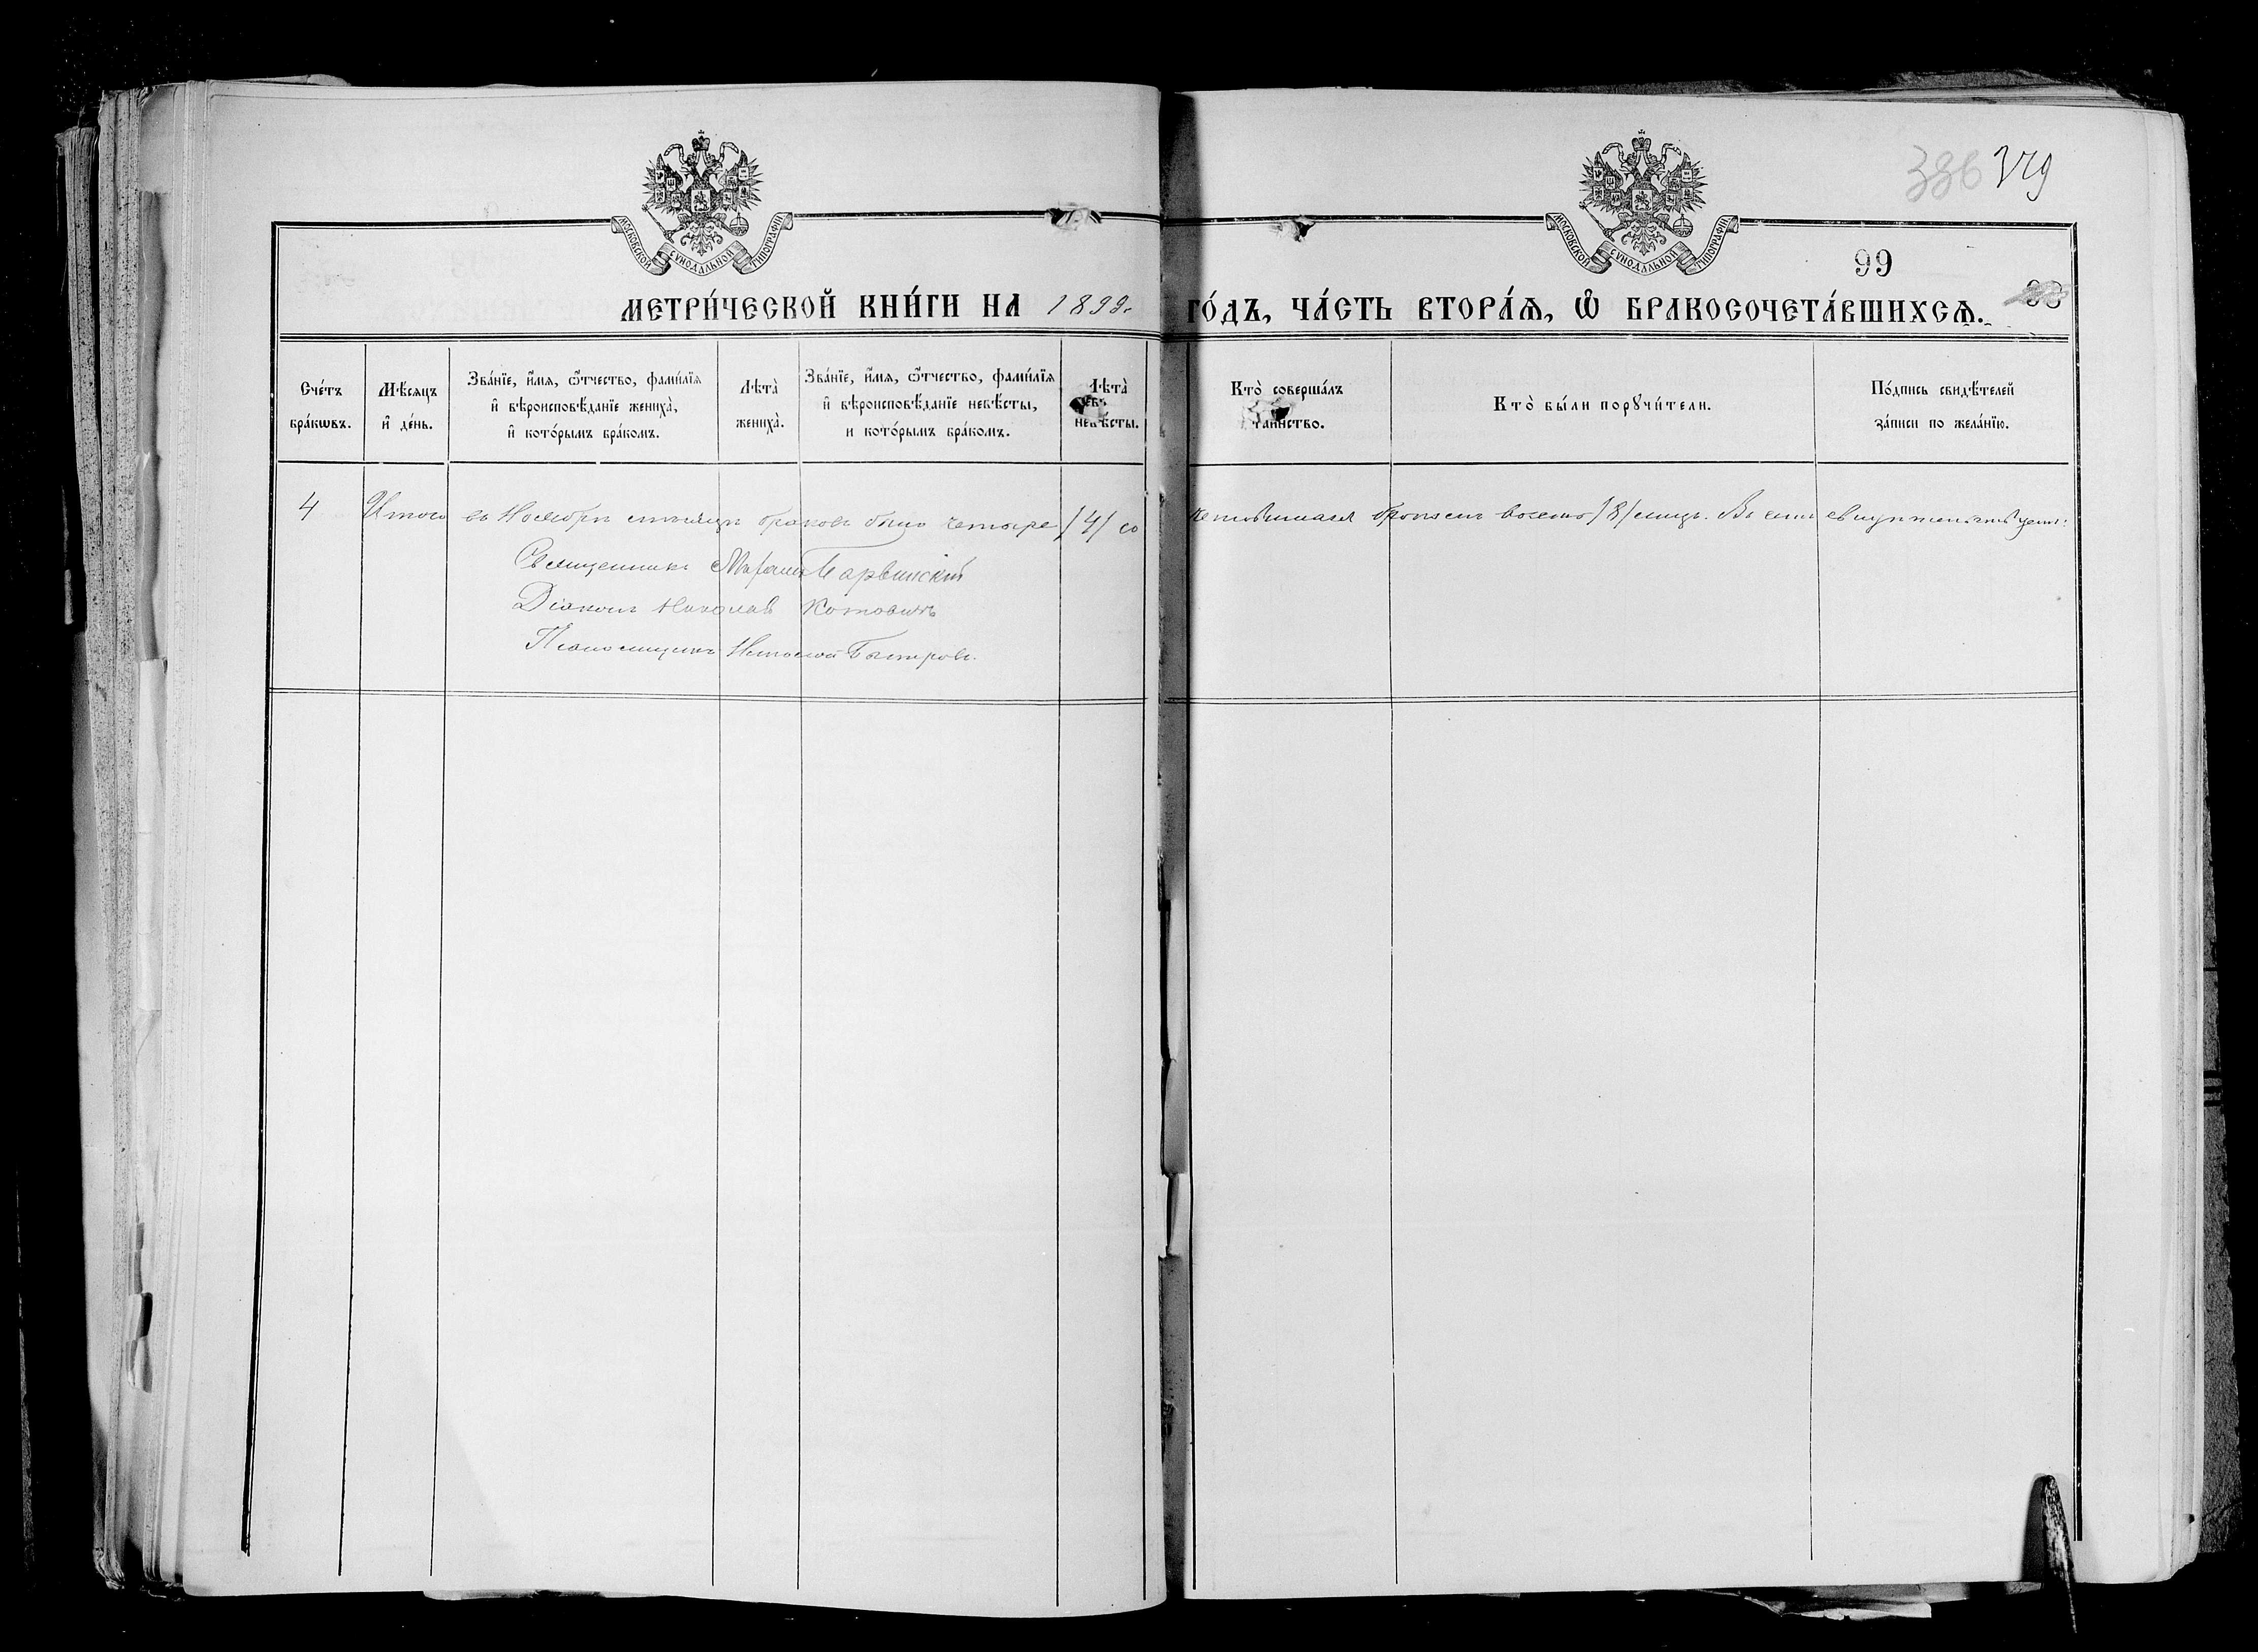 386 379
МОСКОВСКОЙ СѴНОДАЛЬНОЙ ТИПОГРАФІИ
МОСКОВСКОЙ СѴНОДАЛЬНОЙ ТИПОГРАФІИ
99
МЕТРИ́ЧЕСКОЙ КНИ́ГИ НА 1899 г. ГО́ДЪ, ЧА́СТЬ ВТОРА́Ѧ, Ѡ҆ БРАКОСОЧЕТА́ВШИХСѦ.
Сче́тъ бра́кѡвъ.
Мѣ́сяцъ и҆ де́нь.
Зва́нїе, и҆́мя, ѻ҆́тчество, фами́лїя и҆ вѣроисповѣ́данїе жениха̀, и҆ кото́рымъ бра́комъ.
Лѣта̀ жениха̀.
Зва́нїе, и҆́мя, ѻ҆́тчество, фами́лїя и҆ вѣроисповѣ́данїе невѣ́сты, и кото́рымъ бра́комъ.
Лѣта̀ невѣ́сты.
Кто̀ соверша́лъ таинство.
Кто̀ бы́ли порꙋчи́тели.
По́дпись свидѣ́телей за́писи по жела́нїю.
4 Итого въ Ноябрѣ мѣсяцѣ браковъ было четыре /4/ со четавшихся бракомъ восемь /8/ лицъ. Въ чемъ и свидѣтельствуемъ:
Священникъ Барвинскій
Діаконъ Николай Котовичъ
Псаломщикъ Быстровъ.